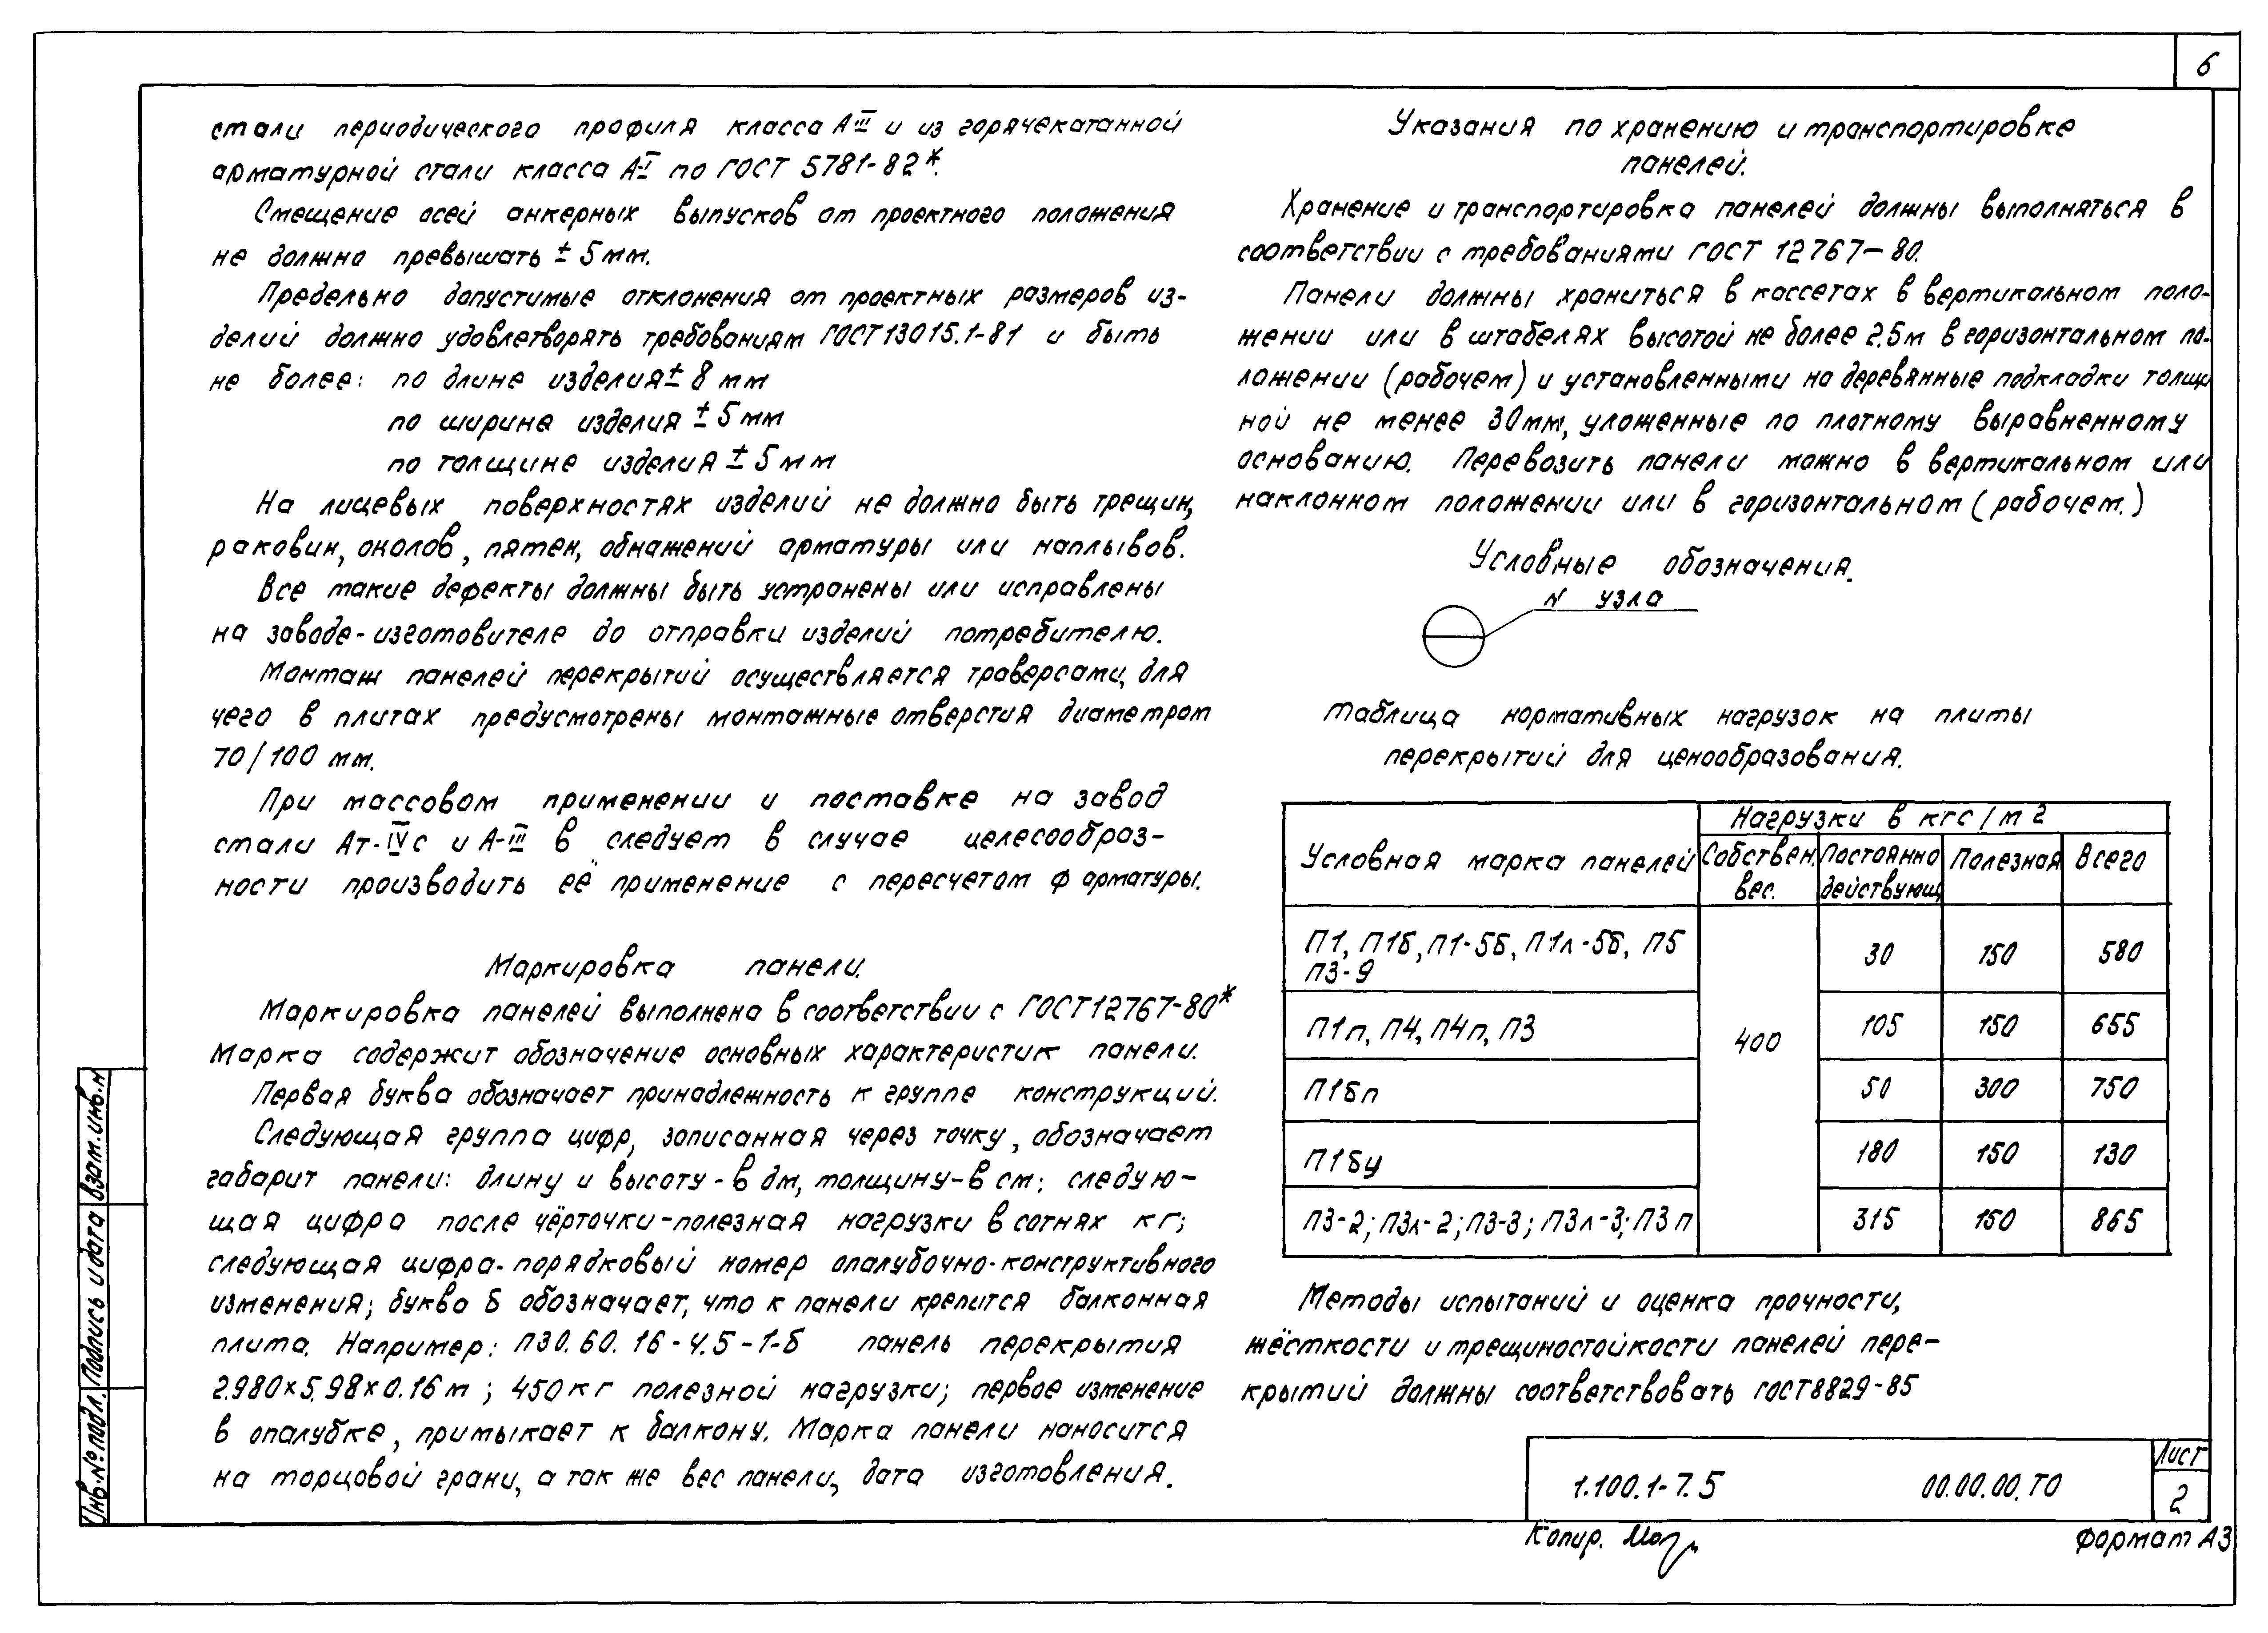 6
стали периодического профиля класса А-III и из горячекатанной
арматурной стали класса А-I по ГОСТ 5781-82*.
Смещение осей анкерных выпусков от проектного положения
не должно превышать ± 5 мм.
Предельно допустимые отклонения от проектных размеров из-
делий должно удовлетворять требованиям ГОСТ 13015.1-81 и быть
не более: по длине изделия ± 8 мм
по ширине изделия ± 5 мм
по толщине изделия ± 5 мм
На лицевых поверхностях изделий не должно быть трещин,
раковин, околов, пятен, обнажений арматуры или наплывов.
Все такие дефекты должны быть устранены или исправлены
на заводе-изготовителе до отправки изделий потребителю.
Монтаж панелей перекрытий осуществляется траверсами, для
чего в плитах предусмотрены монтажные отверстия диаметром
70/100 мм.
При массовом применении и поставке на завод
стали Ат-IVс и А-III в следует в случае целесообраз-
ности производить её применение с пересчетом ф арматуры.
Маркировка панели.
Маркировка панелей выполнена в соответствии с ГОСТ 12767-80*
Марка содержит обозначение основных характеристик панели.
Первая буква обозначает принадлежность к группе конструкций.
Следующая группа цифр, записанная через точку, обозначает
габарит панели: длину и высоту - в дм, толщину - в см; следую-
щая цифра после чёрточки - полезная нагрузки в сотнях кг;
следующая цифра - порядковый номер опалубочно-конструктивного
изменения; буква Б обозначает, что к панели крепится балконная
плита. Например: П30.60.16-4.5-1-Б панель перекрытия
2.980×5.98×0.16м; 450кг полезной нагрузки; первое изменение
в опалубке, примыкает к балкону. Марка панели наносится
на торцовой грани, а так же вес панели, дата изготовления.
Указания по хранению и транспортировке
панелей.
Хранение и транспортировка панелей должны выполняться в
соответствии с требованиями ГОСТ 12767-80.
Панели должны храниться в кассетах в вертикальном поло-
жении или в штабелях высотой не более 2.5м в горизонтальном по-
ложении (рабочем) и установленными на деревянные подкладки толщи
ной не менее 30мм, уложенные по плотному выравненному
основанию. Перевозить панели можно в вертикальном или
наклонном положении или в горизонтальном (рабочем.)
Условные обозначения.
N узла
Таблица нормативных нагрузок на плиты
перекрытий для ценообразования.
Условная марка панелей Нагрузки в кгс/м2
Собствен. вес. Постоянно действующ Полезная Всего
П1, П1Б, П1-5Б, П1л-5Б, П5
П3-9 400 30 150 580
П1п, П4, П4п, П3 105 150 655
П1Бп 50 300 750
П1Бу 180 150 130
П3-2; П3л-2; П3-3; П3л-3; П3п 315 150 865
Методы испытаний и оценка прочности,
жёсткости и трещиностойкости панелей пере-
крытий должны соответствовать ГОСТ 8829-85
1.100.1-7.5 00.00.00.ТО
Лист
2
Копир.
Формат А3
Взам.инв.н
Подпись и дата
Инв.№ подл.